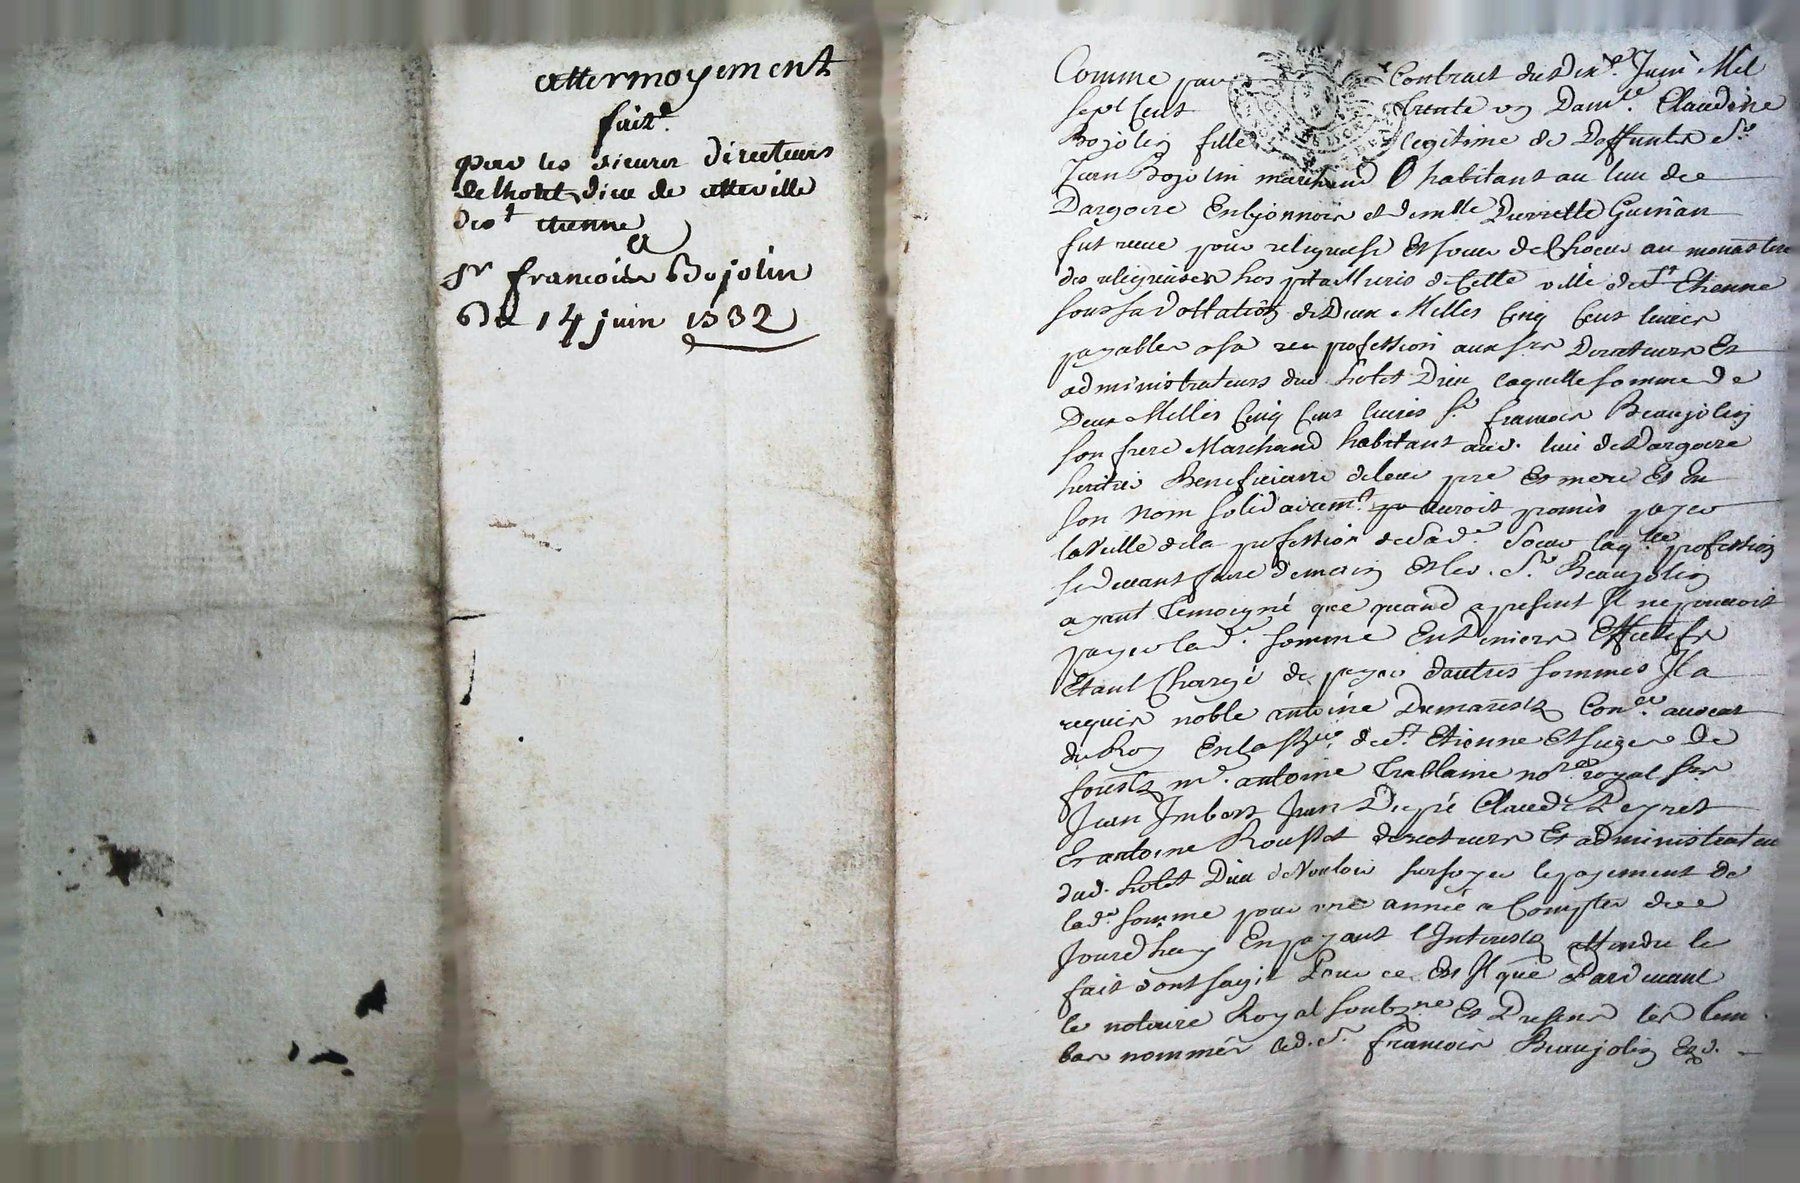 attermoyement
fait
par les sieurs directeurs
de lhotel dieu de cette ville
de st etienne
a
sr francois Bojolin
Du 14 juin 1732
Comme par Contract du Dixe Juin Mil
sept Cent trente un Damlle Claudine
Bojolin fille legitime de Deffunts Sr
Jean Bojolin marchand habitant au lieu de
Dargoire En lyonnois et demlle Pierrette Guinan
fut receue pour religieuse Et soeur de Choeur au monastere
des religieuses hospitallieres de Cette ville de St Etienne
sous sa dottation de Deux Milles Cinq Cent livres
payables a sa profession aux srs Directeurs Et
administrateurs dud hotel Dieu laquelle somme de
Deux Milles Cinq Cent livres sr francois Beaujolin
son frere Marchand habitant aud. lieu de Dargoire
heritier Beneficiaire de leur pere Et mere Et En
son nom solidairemt auroit promis payer
la veille de la profession de sad. soeur laqlle profession
se devant faire demain Et led. Sr Beaujolin
ayant temoigné que quand a present Il ne pouvoit
payer lad. somme En Deniers Effectifs
Etant Chargé de payer dautres sommes Il a
requis noble antoine Dumarest Coner avocat
du Roy En la de St Etienne Et siege de
forest me. antoine Trablaine nore royal srs
Jean Imbert Jean Dupré Claude Peyret
Et antoine Rousset directeurs Et administrateurs
dud. hotel Dieu de Vouloir surseoyer le payement de
lad. somme pour une année a Compter de ce
Jourdhuy En payant l'Interest attendu le
fait dont sagit Pour ce Est Il que Pardevant
le notaire Royal soubzne Et Presens les temoins
bas nommés led. Sr. francois Beaujolin